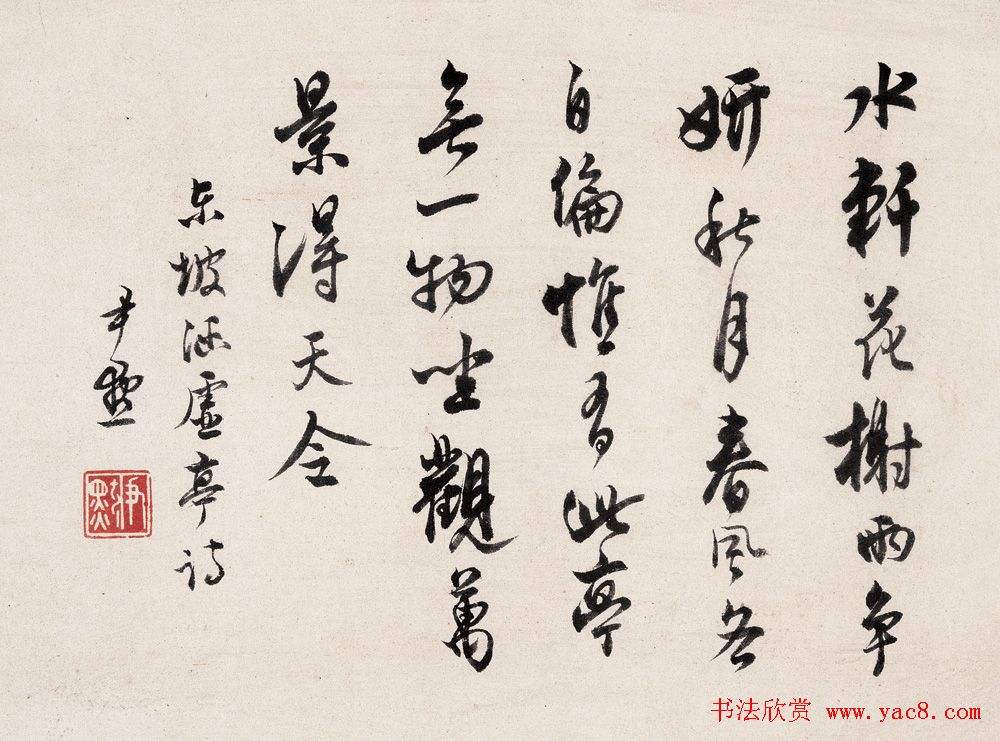 水軒花榭兩争
妍秋月春風各
自偏惟有此亭
無一物坐觀萬
景得天全
东坡涵虛亭诗
尹默
尹默
书法欣赏 www.yac8.com